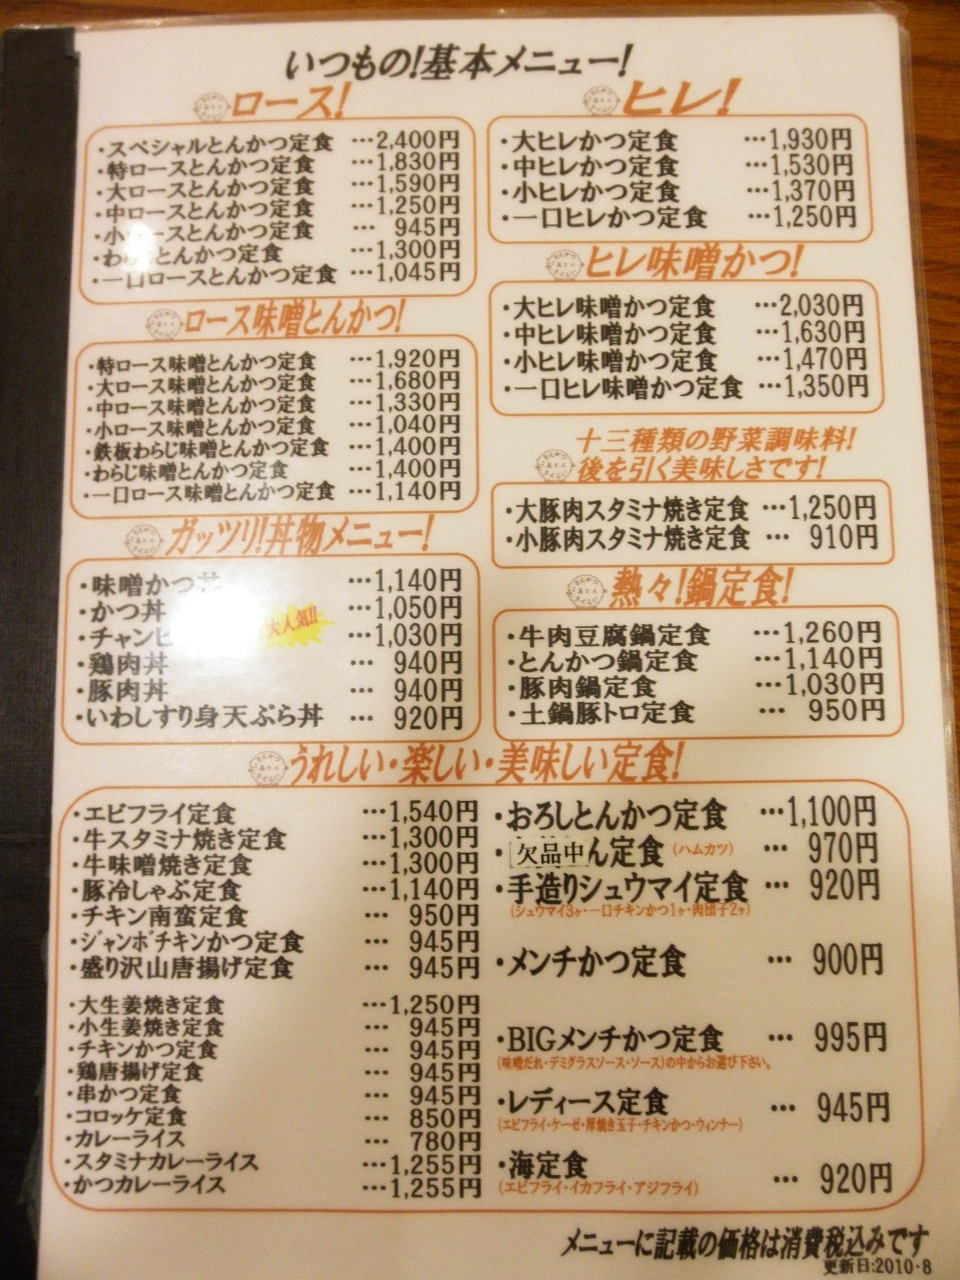 いつもの!基本メニュー!
ロース!
・スペシャルとんかつ定食 …2,400円
・特ロースとんかつ定食 …1,830円
・大ロースとんかつ定食 …1,590円
・中ロースとんかつ定食 …1,250円
・小ロースとんかつ定食 … 945円
・わらじとんかつ定食 …1,300円
・一口ロースとんかつ定食 …1,045円
ロース味噌とんかつ!
・特ロース味噌とんかつ定食 …1,920円
・大ロース味噌とんかつ定食 …1,680円
・中ロース味噌とんかつ定食 …1,330円
・小ロース味噌とんかつ定食 …1,040円
・鉄板わらじ味噌とんかつ定食 …1,400円
・わらじ味噌とんかつ定食 …1,400円
・一口ロース味噌とんかつ定食 …1,140円
ガッツリ!丼物メニュー!
・味噌かつ丼 …1,140円
・かつ丼 …1,050円
・チャンピ 大人気!! …1,030円
・鶏肉丼 … 940円
・豚肉丼 … 940円
・いわしすり身天ぷら丼 … 920円
ヒレ!
・大ヒレかつ定食 …1,930円
・中ヒレかつ定食 …1,530円
・小ヒレかつ定食 …1,370円
・一口ヒレかつ定食 …1,250円
ヒレ味噌かつ!
・大ヒレ味噌かつ定食 …2,030円
・中ヒレ味噌かつ定食 …1,630円
・小ヒレ味噌かつ定食 …1,470円
・一口ヒレ味噌かつ定食 …1,350円
十三種類の野菜調味料!
後を引く美味しさです!
・大豚肉スタミナ焼き定食 …1,250円
・小豚肉スタミナ焼き定食 … 910円
熱々!鍋定食!
・牛肉豆腐鍋定食 …1,260円
・とんかつ鍋定食 …1,140円
・豚肉鍋定食 …1,030円
・土鍋豚トロ定食 … 950円
うれしい・楽しい・美味しい定食!
・エビフライ定食 …1,540円
・牛スタミナ焼き定食 …1,300円
・牛味噌焼き定食 …1,300円
・豚冷しゃぶ定食 …1,140円
・チキン南蛮定食 … 950円
・ジャンボチキンかつ定食 … 945円
・盛り沢山唐揚げ定食 … 945円
・大生姜焼き定食 …1,250円
・小生姜焼き定食 … 945円
・チキンかつ定食 … 945円
・鶏唐揚げ定食 … 945円
・串かつ定食 … 945円
・コロッケ定食 … 850円
・カレーライス … 780円
・スタミナカレーライス …1,255円
・かつカレーライス …1,255円
・おろしとんかつ定食 …1,100円
・欠品中ん定食(ハムカツ) … 970円
・手造りシュウマイ定食 … 920円
(シュウマイ3ヶ・一口チキンかつ1ヶ・肉団子2ヶ)
・メンチかつ定食 … 900円
・BIGメンチかつ定食 … 995円
(味噌だれ・デミグラスソース・ソース)の中からお選び下さい。
・レディース定食 … 945円
(エビフライ・ケーゼ・厚焼き玉子・チキンかつ・ウィンナー)
・海定食 … 920円
(エビフライ・イカフライ・アジフライ)
メニューに記載の価格は消費税込みです
更新日:2010・8